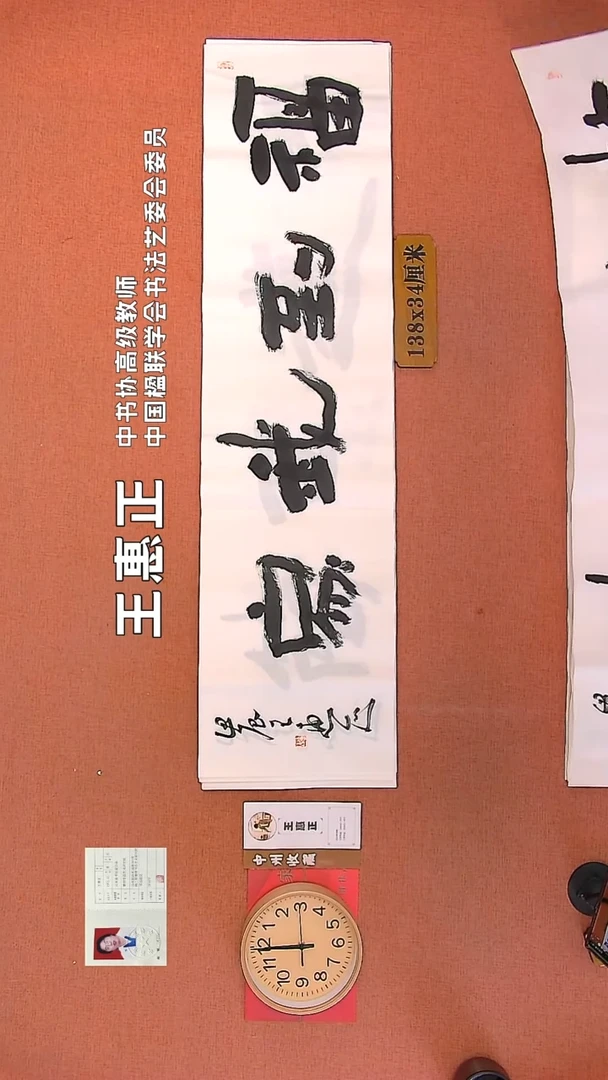 中书协高级教师
中国楹联学会书法艺委会委员
王惠正
福到我家
138x34厘米
王惠正
中州收藏
12
1
2
3
4
5
6
7
8
9
10
11